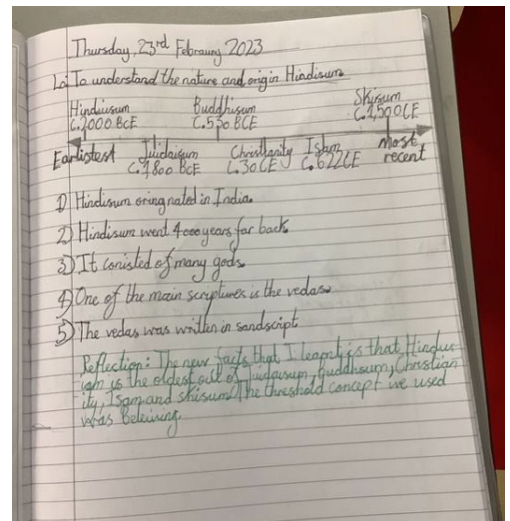 Thursday, 23rd Febraury 2023
Lo: To understand the nature and origin Hindisum.
Hinduisum Buddhisum Skisum
C.2000 BCE C.550 BCE C.1,500 CE
Earlistest Juidaisum Christhanity Islam most recent
C.1,800 BCE C.30 CE C.622 CE
1) Hindisum oringnated in India.
2) Hindisum went 4000 years far back
3) It conisted of many gods.
4) One of the main scriptures is the vedas.
5) The vedas was written in sandscript
Reflection: The new facts that I learnt is that Hindu
ism is the oldest out of Juidaisum, Buddhsum, Christian
ity, Isam and shisum. The threshold concept we used
was beleiving.